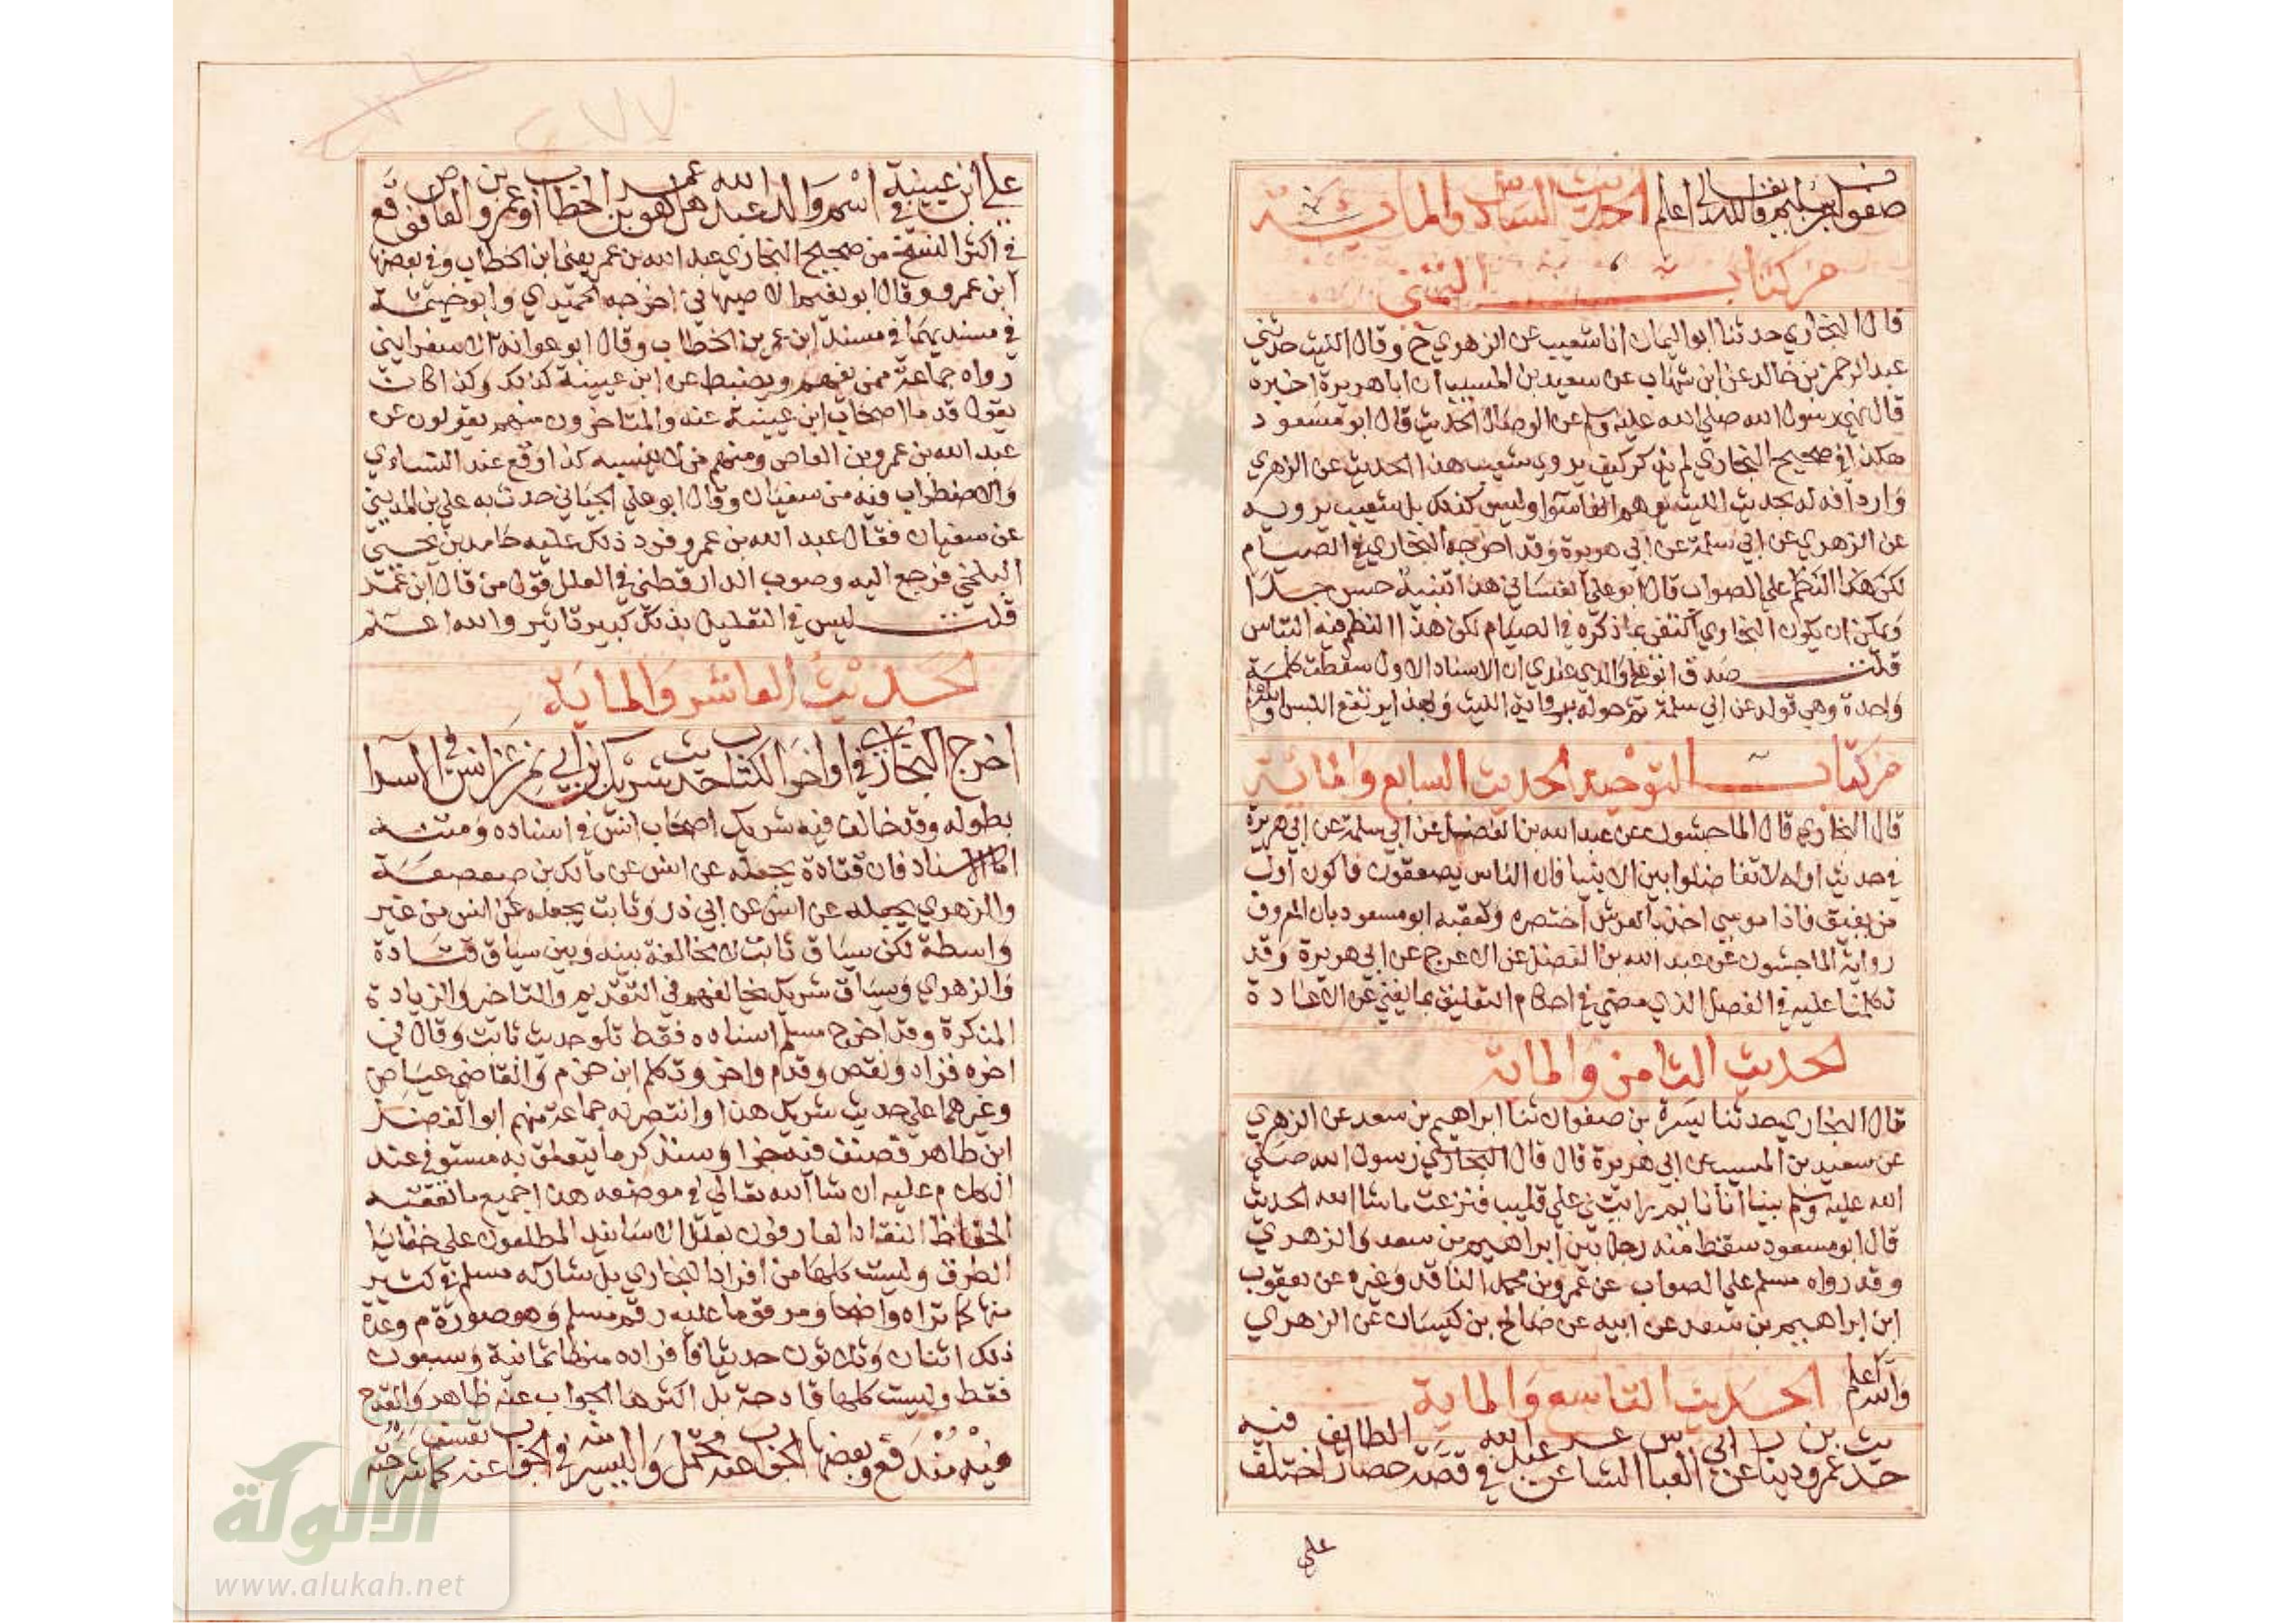 صفوان بن سليم والله تعالى أعلم الحديث السادس والماية
من كتاب التمني
قال البخاري حدثنا ابو اليمان انا شعيب عن الزهري ح وقال الليث حدثني
عبد الرحمن بن خالد عن ابن شهاب عن سعيد بن المسيب ان ابا هريرة اخبره
قال نهى رسول الله صلى الله عليه وسلم عن الوصال الحديث قال ابو مسعود
هكذا في صحيح البخاري لم يذكر كيف يروي شعيب هذا الحديث عن الزهري
وارد افه له بحديث الليث يوهم انهما سوا وليس كذلك بل شعيب يرويه
عن الزهري عن ابي سلمة عن ابي هريرة وقد اخرجه البخاري في الصيام
لكن هذا النظم على الصواب قال ابو علي الغساني هذا تنبيه حسن جدا
ويمكن ان يكون البخاري اكتفى بما ذكره في الصيام لكن هذا النظم فيه التباس
قلت صدق ابو علي والذي عندي ان الاسناد الاول سقطت كلمة
واحدة وهي قوله عن ابي سلمة ثم حوله برواية الليث وبهذا يرتفع اللبس والله اعلم
من كتاب التوحيد الحديث السابع والماية
قال البخاري قال الماجشون عن عبد الله بن الفضل عن ابي سلمة عن ابي هريرة
في حديث اوله لا تفاضلوا بين الانبيا فان الناس يصعقون فاكون اول
من يفيق فاذا موسى اخذ بالعرش اختصره وتعقبه ابو مسعود بان المعروف
رواية الماجشون عن عبد الله بن الفضل عن الاعرج عن ابي هريرة وقد
تكلمنا عليه في الفصل الذي مضى في احكام التعليق بما يغني عن الاعادة
الحديث الثامن والماية
قال البخاري حدثنا يسرة بن صفوان ثنا ابراهيم بن سعد عن الزهري
عن سعيد بن المسيب عن ابي هريرة قال قال البخاري رسول الله صلى
الله عليه وسلم بينا أنا نايم رايتني على قليب فنزعت ما شا الله الحديث
قال ابو مسعود سقط منه رجل بين ابراهيم بن سعد والزهري
وقد رواه مسلم على الصواب عن عمرو بن محمد الناقد وغيره عن يعقوب
ابن ابراهيم بن سعد عن ابيه عن صالح بن كيسان عن الزهري
والله اعلم الحديث التاسع والماية
حديث عمرو بن دينار عن ابي العباس الشاعر عن عبد الله في قصة حصار الطايف اختلف فيه
على
على ابن عيينة في اسم والد عبد الله هل هو عمر بن الخطاب او عمرو بن العاص فوقع
في اكثر النسخ من صحيح البخاري عبد الله بن عمر يعني ابن الخطاب وفي بعضها
ابن عمرو وقال ابو نعيم الاصبهاني اخرجه الحميدي وابو خيثمة
في مسنديهما في مسند ابن عمر بن الخطاب وقال ابو عوانة الاسفرايني
رواه جماعة ممن يفهم ويضبط عن ابن عيينة كذلك وكذا كان
يقول قدما اصحاب ابن عيينة عنه والمتاخرون منهم يقولون عن
عبد الله بن عمرو بن العاص ومنهم من لا ينسبه كذا وقع عند النساءي
والاضطراب فيه من سفيان وقال ابو علي الجياني حدث به علي بن المديني
عن سفيان فقال عبد الله بن عمرو فرد ذلك عليه حامد بن يحيى
البلخي فرجع اليه وصوب الدارقطني في العلل قول من قال ابن عمر
قلت ليس في التعليل بذلك كبير تاثير والله اعلم
الحديث العاشر والماية
اخرج البخاري في اواخر الكتاب حديث شريك بن ابي نمر عن انس في الاسرا
بطوله وقد خالف فيه شريك اصحاب انس في اسناده ومتنه
اما الاسناد فان قتادة يجعله عن انس عن مالك بن صعصعة
والزهري يجعله عن انس عن ابي ذر وثابت يجعله عن انس من غير
واسطة لكن سياق ثابت لا مخالفة بينه وبين سياق قتادة
والزهري وسياق شريك يخالفهم في التقديم والتاخير والزيادة
المنكرة وقد اخرج مسلم اسناده فقط تلو حديث ثابت وقال في
اخره فزاد ونقص وقدم واخر وتكلم ابن حزم والقاضي عياض
وغيرهما على حديث شريك هذا وانتصر له جماعة منهم ابو الفضل
ابن طاهر فصنف فيه جزا وسنذكر ما يتعلق به مستوفى عند
الكلام عليه ان شا الله تعالى في موضعه هذا جميع ما تعقبه
الحفاظ النقاد العارفون بعلل الاسانيد المطلعون على خفايا
الطرق وليست كلها من افراد البخاري بل شاركه مسلم في كثير
منها كما تراه واضحا ومرقوما عليه رقم مسلم وهو صورة م وعدة
ذلك اثنان وثلاثون حديثا فافراده منها ثمانية وسبعون
فقط وليست كلها قادحة بل اكثرها الجواب عنه ظاهر والقدح
فيه مندفع وبعضها الجواب عنه محتمل واليسير منه في الجواب عنه تعسف كما شرحته
الألوكة
www.alukah.net